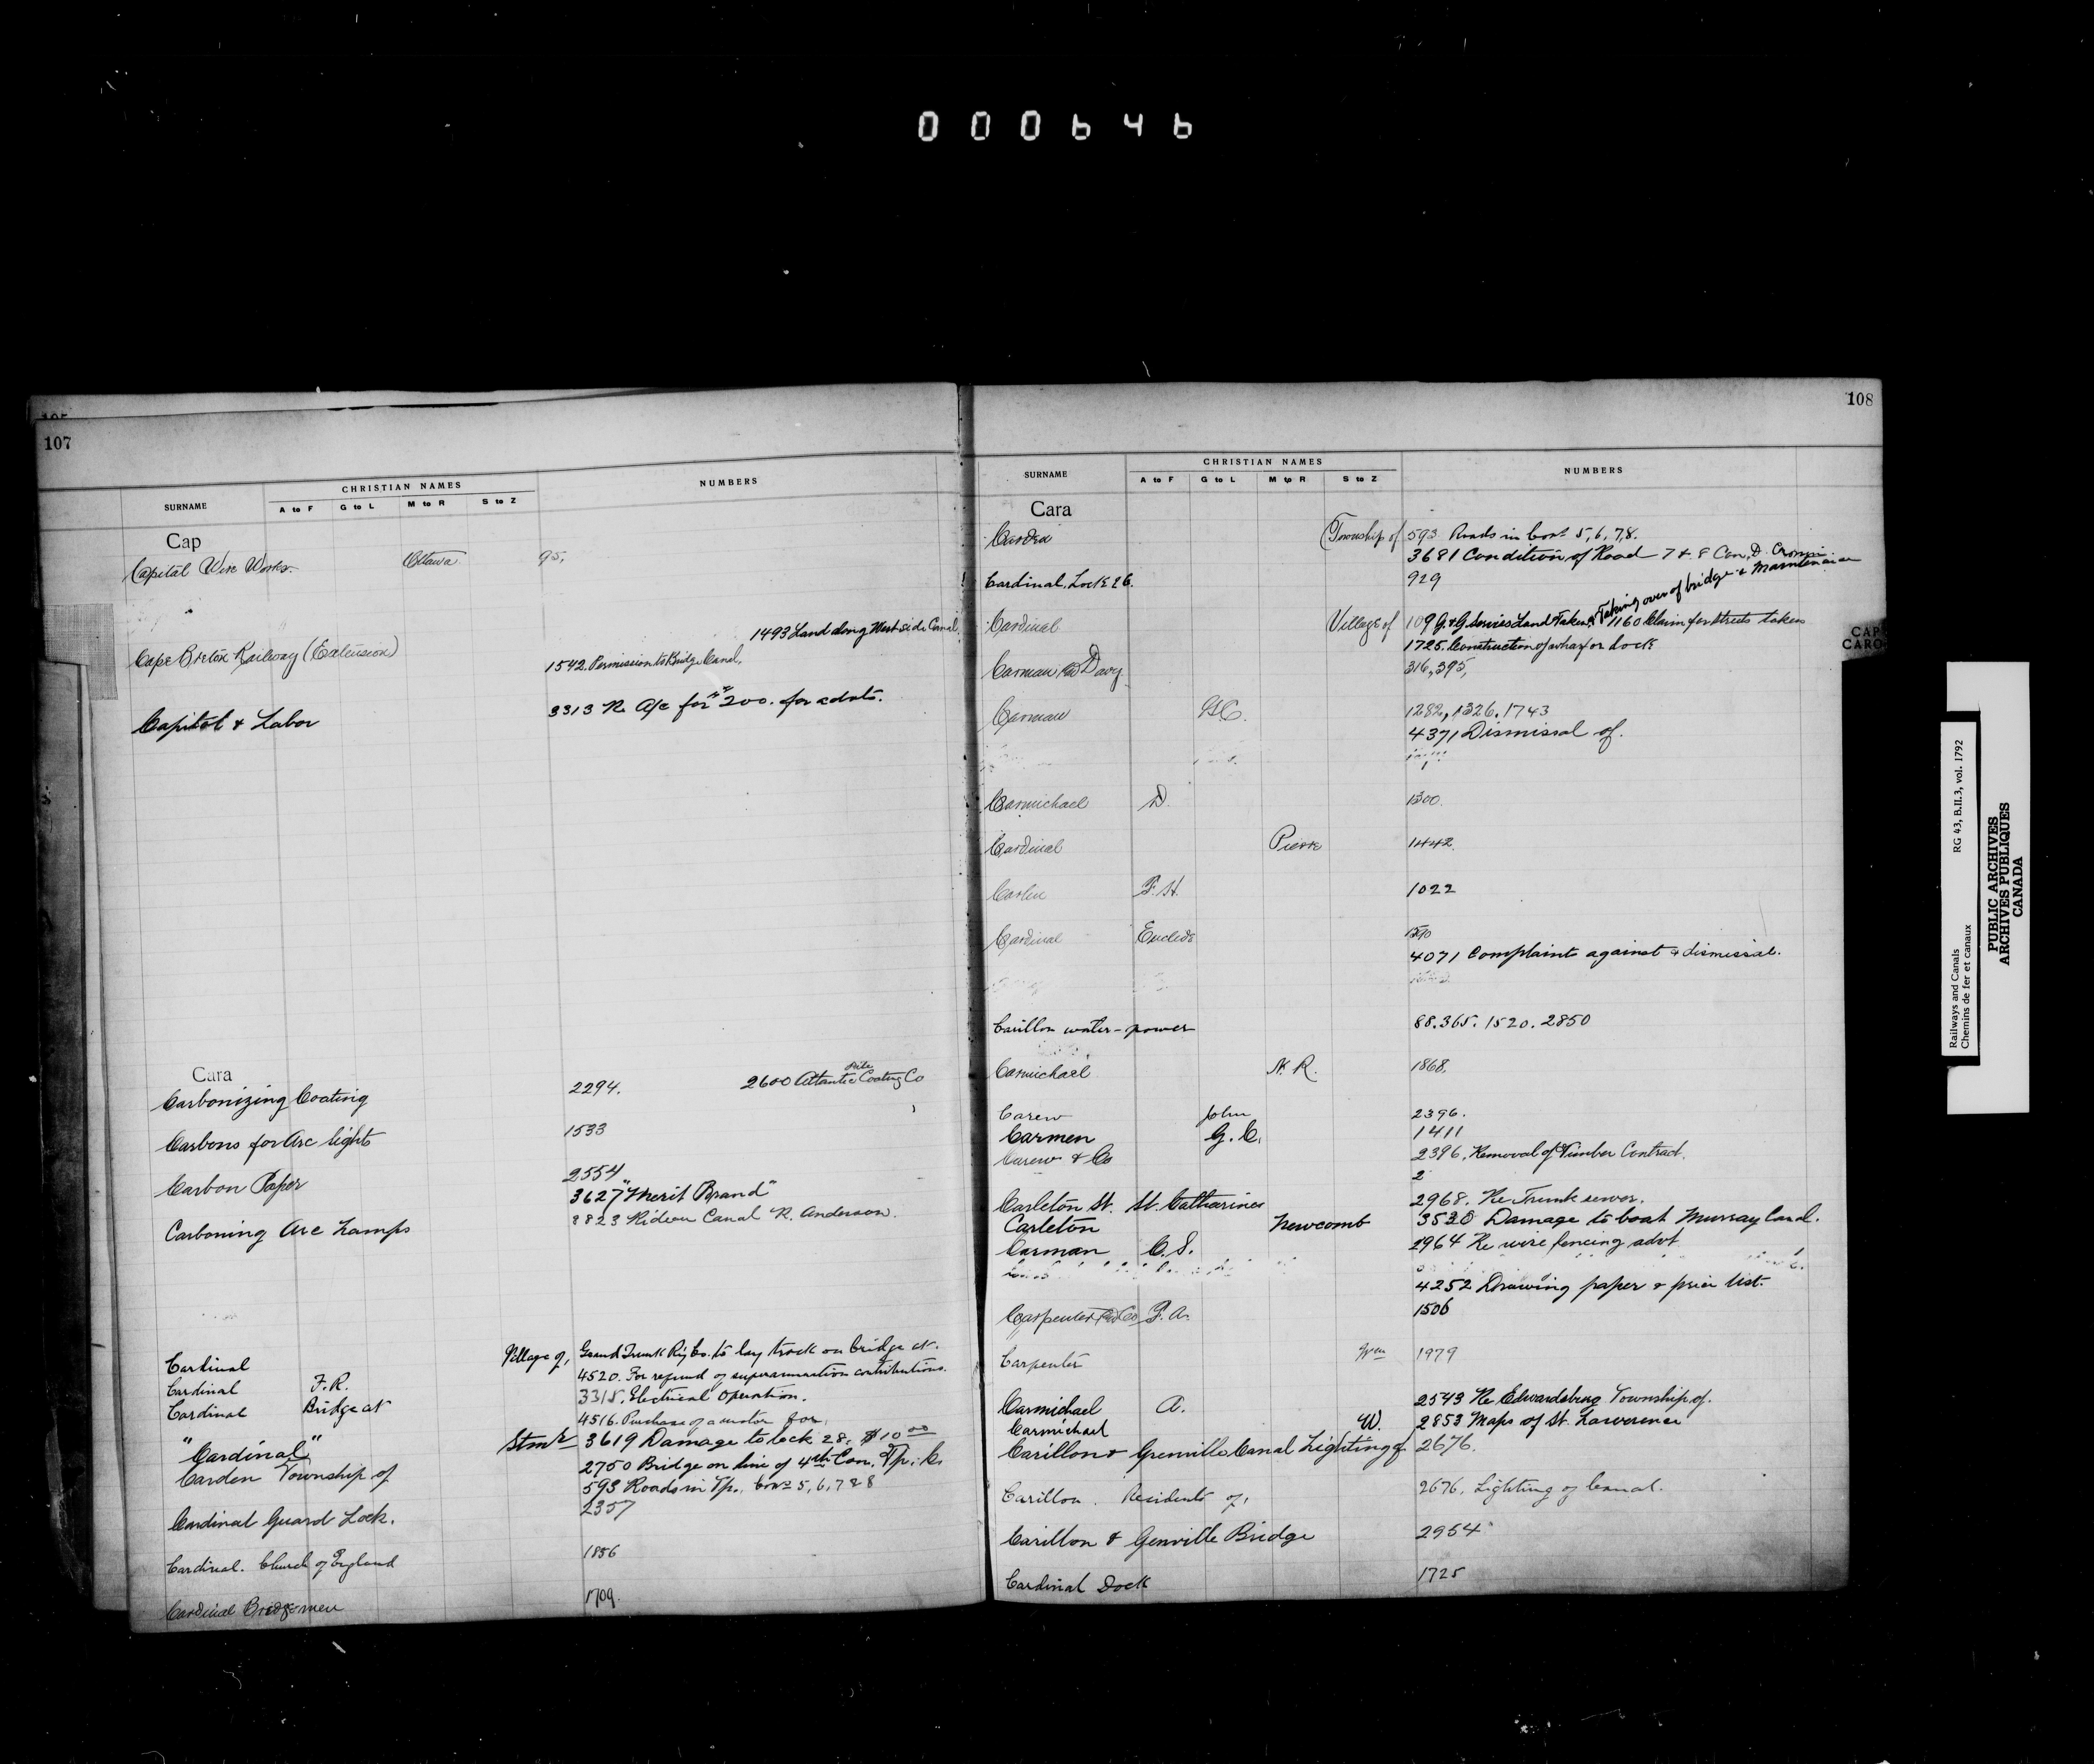 000646
107
SURNAME CHRISTIAN NAMES NUMBERS
A to F G to L M to R S to Z
Cap
Capital Wire Works. Ottawa 95.
1493 Land along West side Canal.
Cape Breton Railway (Extension) 1542. Permission to Bridge Canal.
Capital & Labor 3313 Re A/c for 200. for advts.
Cara
Carbonizing Coating 2294. 2600 Atlantic Coating Co
Carbons for Arc lights 1533
Carbon Paper 2554
3627 "Merit Brand"
Carboning Arc Lamps 8823 Rideau Canal R. Anderson.
Cardinal Village of, Grand Trunk Ry Co. to lay track on bridge at.
Cardinal F.R. 4520. For refund of superannuation contributions.
Cardinal Bridge at 3315. Electrical Operation.
4516. Purchase of a motor for.
"Cardinal" Stmr 3619 Damage to lock 28. $10 00
Carden Township of 2750 Bridge on line of 4th Con. Tp.
593 Roads in Tp. Cons 5, 6, 7 & 8
Cardinal Guard Lock. 2357
Cardinal. Church of England 1856
Cardinal Bridgemen 1709.
108
SURNAME CHRISTIAN NAMES NUMBERS
A to F G to L M to R S to Z
Cara
Carden Township of 593 Roads in Cons 5, 6, 7, 8.
3681 Condition of Road 7 & 8 Con. D. Cronin
Cardinal, Lock 26. 929 Taking over of bridge & Maintenance
Cardinal Village of 109 G. & G Service Land Taken. 1160 Claim for Streets taken
1725. Construction of wharf or dock
Carman Davy 316, 395,
Carman G.C. 1282, 1326, 1743
4371 Dismissal of.
Carmichael D. 1300.
Cardinal Pierre 1442.
Carlin F. H. 1022
Cardinal Euclide
4071 Complaint against & dismissal.
Carillon water-power 88. 365. 1520. 2850
Carmichael N. R. 1868.
Carew John 2396.
Carmen G. C. 1411
Carew & Co 2396. Removal of Timber Contract.
2
Carleton St. St. Catharines 2968. Re Trunk sewer.
Carleton Newcomb 3538 Damage to boat Murray Canal.
Carman C. S. 2964 Re wire fencing advt
4252 Drawing paper & price list.
Carpenter & Co F. A. 1506
Carpenter Wm 1979
Carmichael A. 2543 Re Edwardsburg Township of.
Carmichael W. 2853 Maps of St. Lawerence
Carillon & Grenville Canal Lighting of 2676.
Carillon. Residents of, 2676. Lighting of Canal.
Carillon & Genville Bridge 2954
Cardinal Dock 1725
CAP
CARO
Railways and Canals RG 43, B.II.3, vol. 1792
Chemins de fer et canaux
PUBLIC ARCHIVES
ARCHIVES PUBLIQUES
CANADA